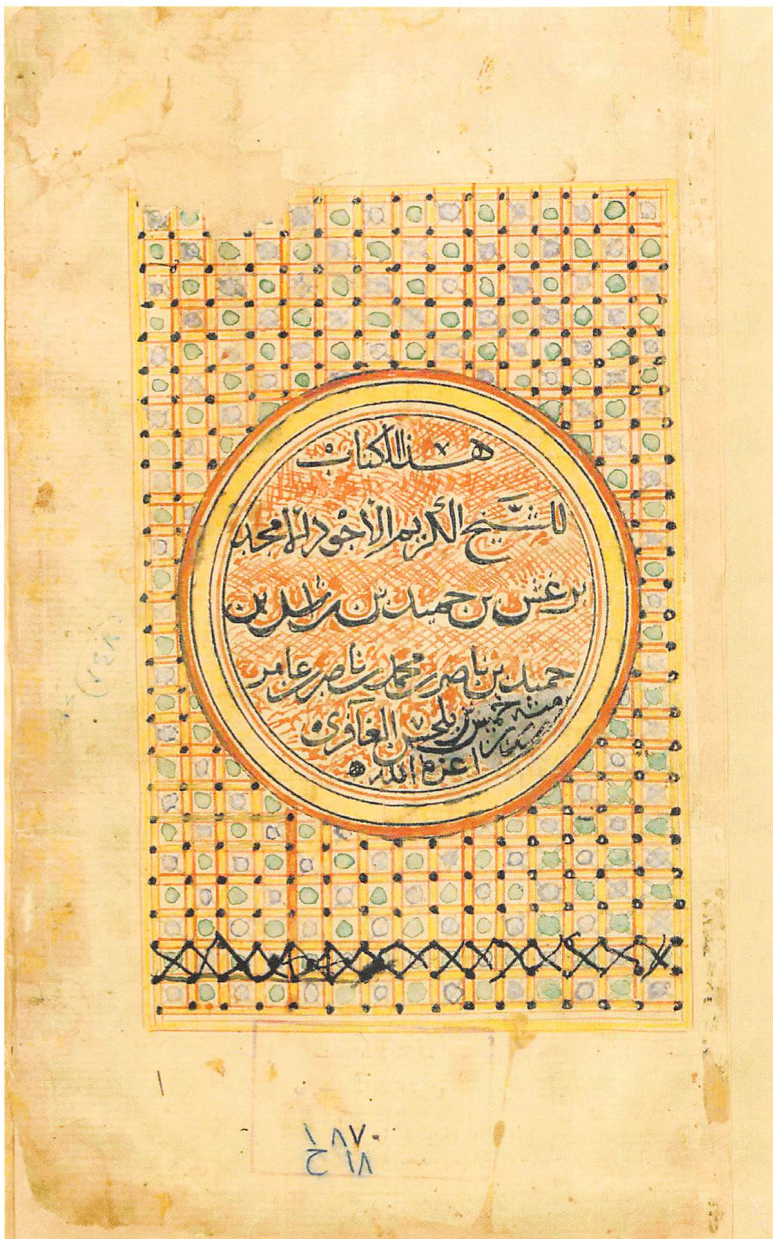 هذا الكتاب
للشيخ الكريم الأجود الأمجد
برغش بن حميد بن راشد بن
حميد بن ناصر بن محمد بن ناصر بن عامر
خميس بن بلحسن الغافري
أعزه الله
(١٤٨)
١٨٧٠
١٨ ح